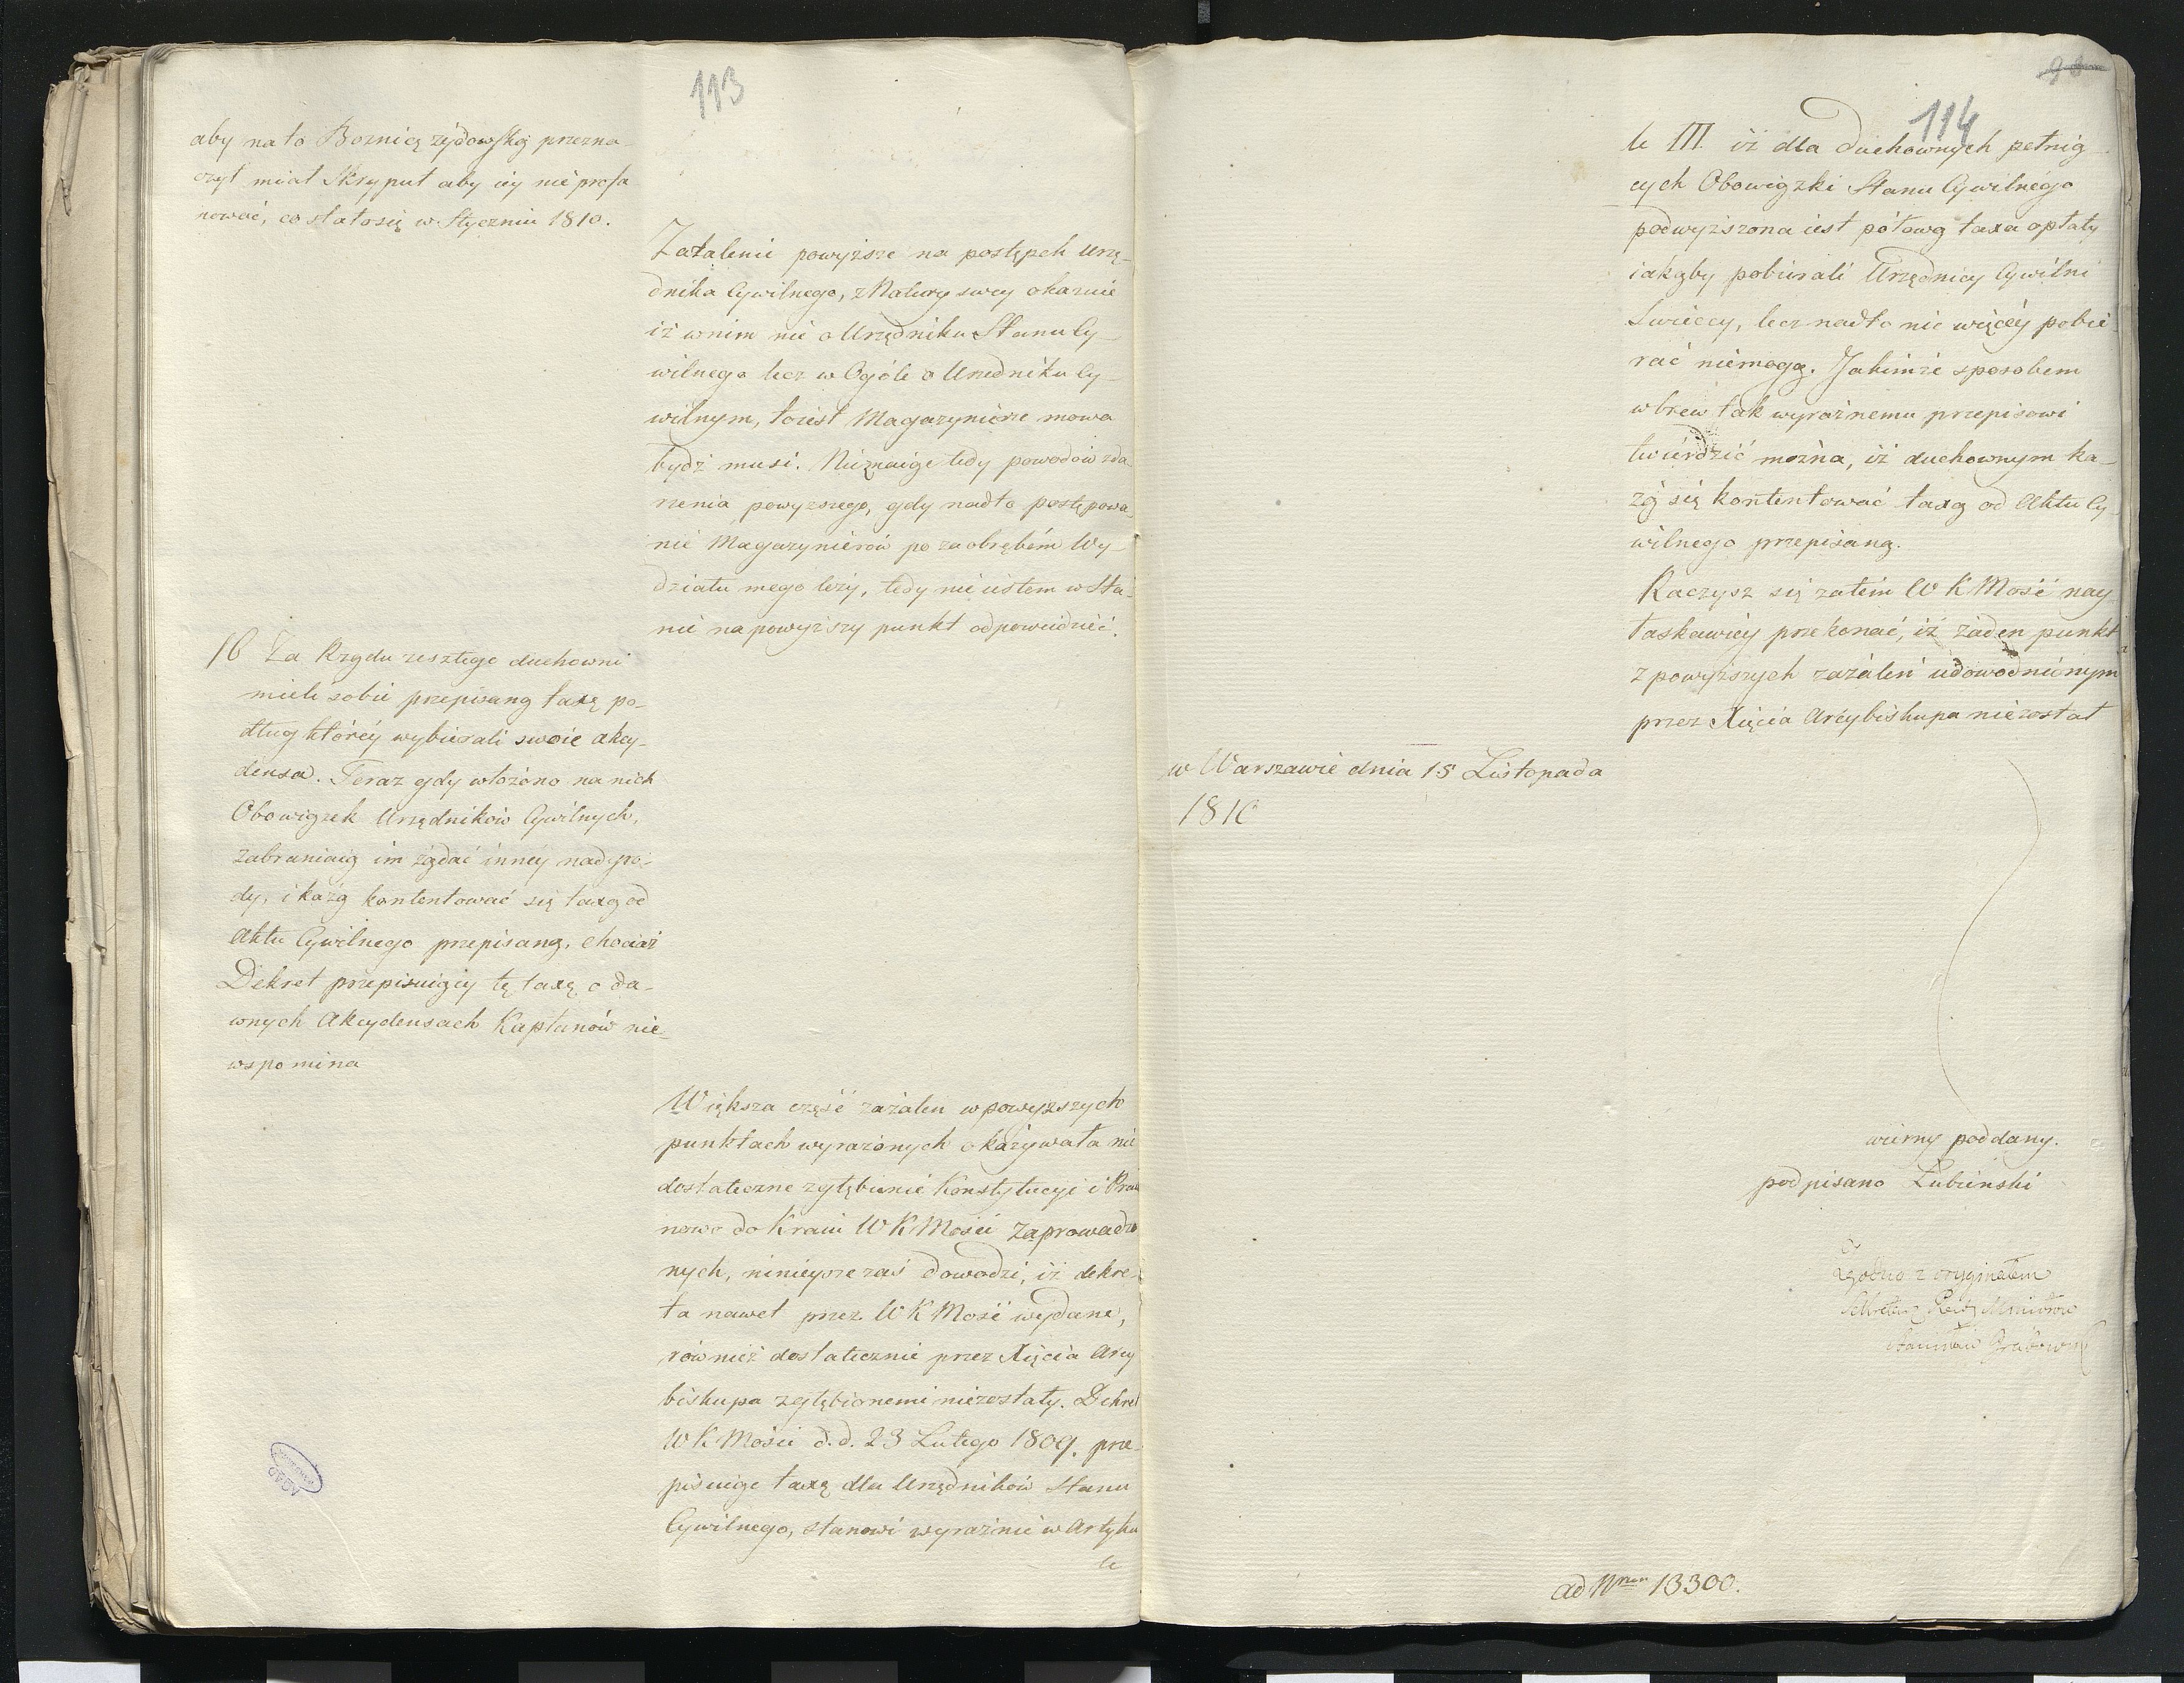 113
aby na to Boznicą żydowską przezna-
czył miał skryput aby iéy nie profa
nować, co stało się w Styczniu 1810.
Zażalenie powyższe na postępek Urzę-
dnika Cywilnego, z Natury swey okazuie
iż w nim nie o Urzędniku Stanu Cy-
wilnego lecz w Ogóle o Urzedniku Cy-
wilnym, to iest Magazynierze mowa
bydź musi. Nieznaiąc tedy powodów zda-
rzenia powyzszego, gdy nadto postępowa-
nie Magazynierów po za obrębém Wy-
działu mego leży, tedy nie iestem w Sta-
nie na powyższy punkt odpowiedzieć.
16 Za Rządu zeszłego duchowni
mieli sobie przepisaną taxę po-
dług któréy wybierali swoie akcy-
densa. Teraz gdy włożono na nich
Obowiązek Urzędników Cywilnych,
zabraniaią im żądać inney nadgro-
dy, i każą kontentować się taxą od
Aktu Cywilnego przepisaną, chociaż
Dekret przepisuiący tę taxę o da-
wnych Akcydensach Kapłanów nie-
wspomina
Większa część zażaleń w powyższych
punktach wyrażonych okazywała nie
dostateczne zgłębienie Konstytucyi i Praw
nowo do Kraiu W K Mości zaprowadzo
nych, ninieysze zaś dowodzi, iż dekre-
ta nawet przez W K Mość wydane,
również dostatecznie przez Xięcia Arcy
biskupa zgłębionemi niezostały. Dekret
W K Mości d. d. 23 Lutego 1809. prze-
pisuiąc taxę dla Urzędników Stanu
Cywilnego, stanowi wyraźnie w Artyku
le
114
le III. iż dla Duchownych pełnią-
cych Obowiązki Stanu Cywilnégo
podwyższona iest połową taxa opłaty
iakąby pobierali Urzędnicy Cywilni
Swieccy, lecz nadto nic więcéy pobie-
rać niemogą. Jakimże sposobem
wbrew tak wyraźnemu przepisowi
twierdzić można, iż duchownym ka-
żą się kontentować taxą od Aktu Cy-
wilnego przepisaną.
Raczysz się zatém W K Mość nay
łaskawiéy przekonać, iż żaden punkt
z powyższych zażaleń udowodnionym
przez Xięcia Arcybiskupa niezostał
w Warszawie dnia 15 Listopada
1810
wierny poddany.
podpisano Łubieński
Zgodno z oryginałem
Sekretarz Rady Ministrów
Stanisław Grabowski
ad Nrum 13300.